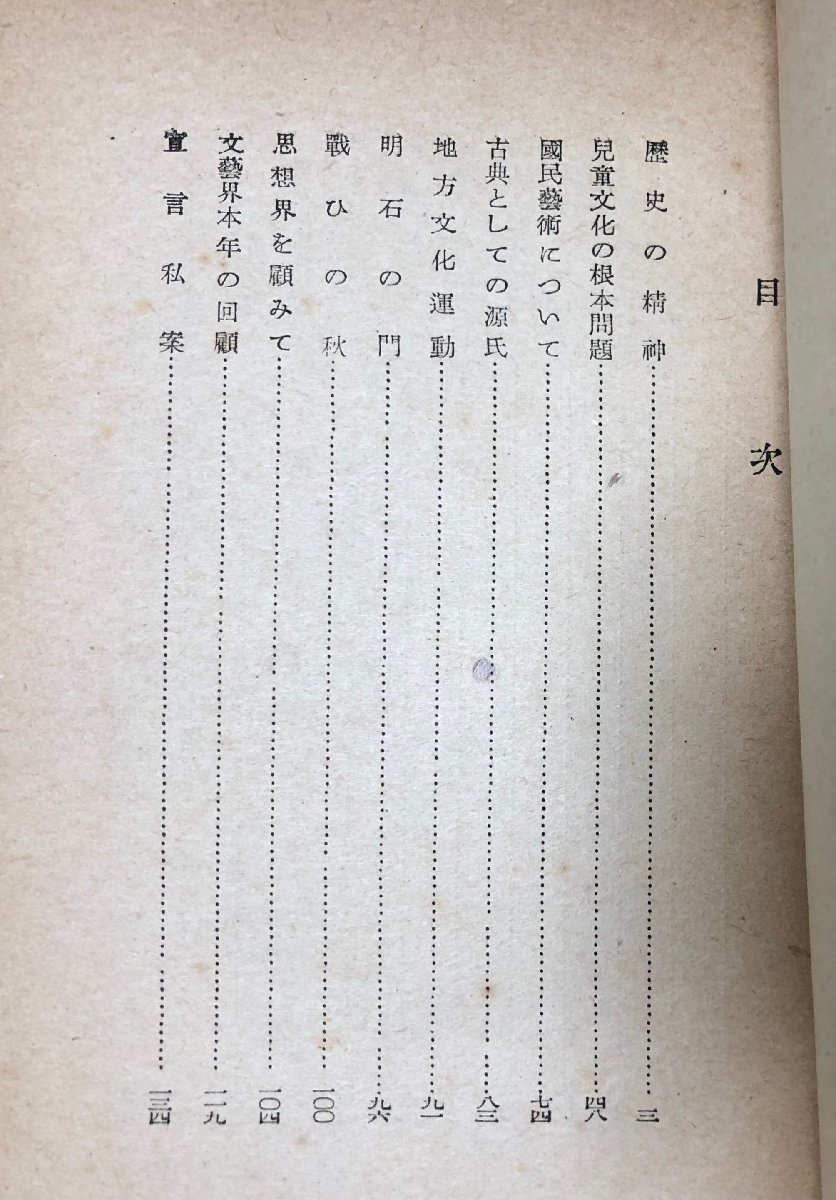 目次
歷史の精神……三
兒童文化の根本問題……四八
國民藝術について……七四
古典としての源氏……八三
地方文化運動……九一
明石の門……九六
戰ひの秋……一〇〇
思想界を顧みて……一〇四
文藝界本年の回顧……一一九
宣言私案……一三四